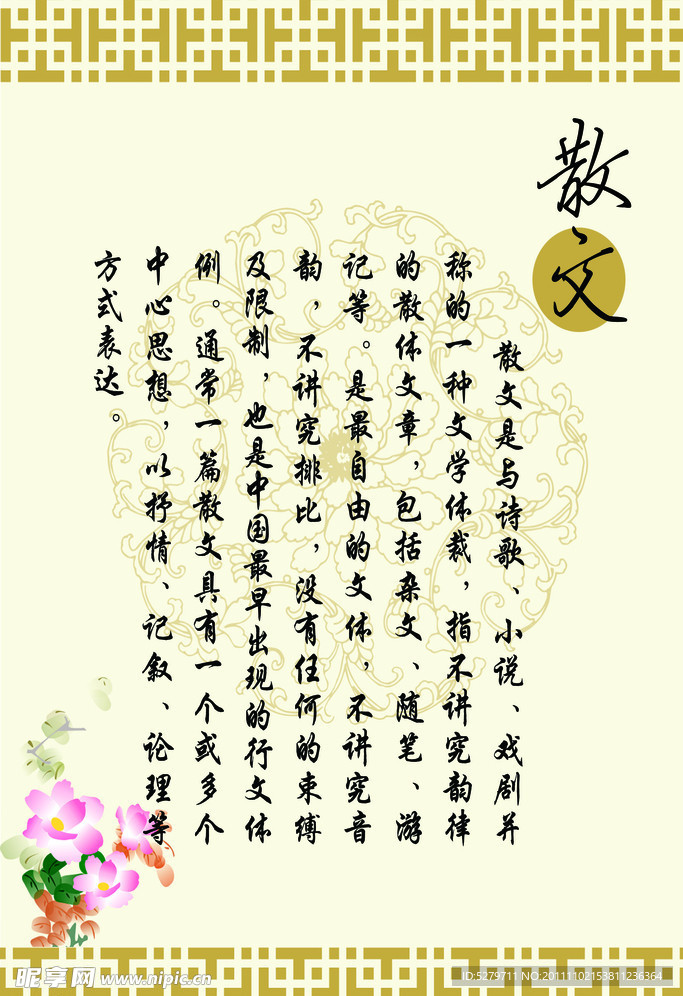 散文
散文是与诗歌、小说、戏剧并
称的一种文学体裁，指不讲究韵律
的散体文章，包括杂文、随笔、游
记等。是最自由的文体，不讲究音
韵，不讲究排比，没有任何的束缚
及限制，也是中国最早出现的行文体
例。通常一篇散文具有一个或多个
中心思想，以抒情、记叙、论理等
方式表达。
昵享网 www.nipic.cn
ID:5279711 NO:20111102153811236364